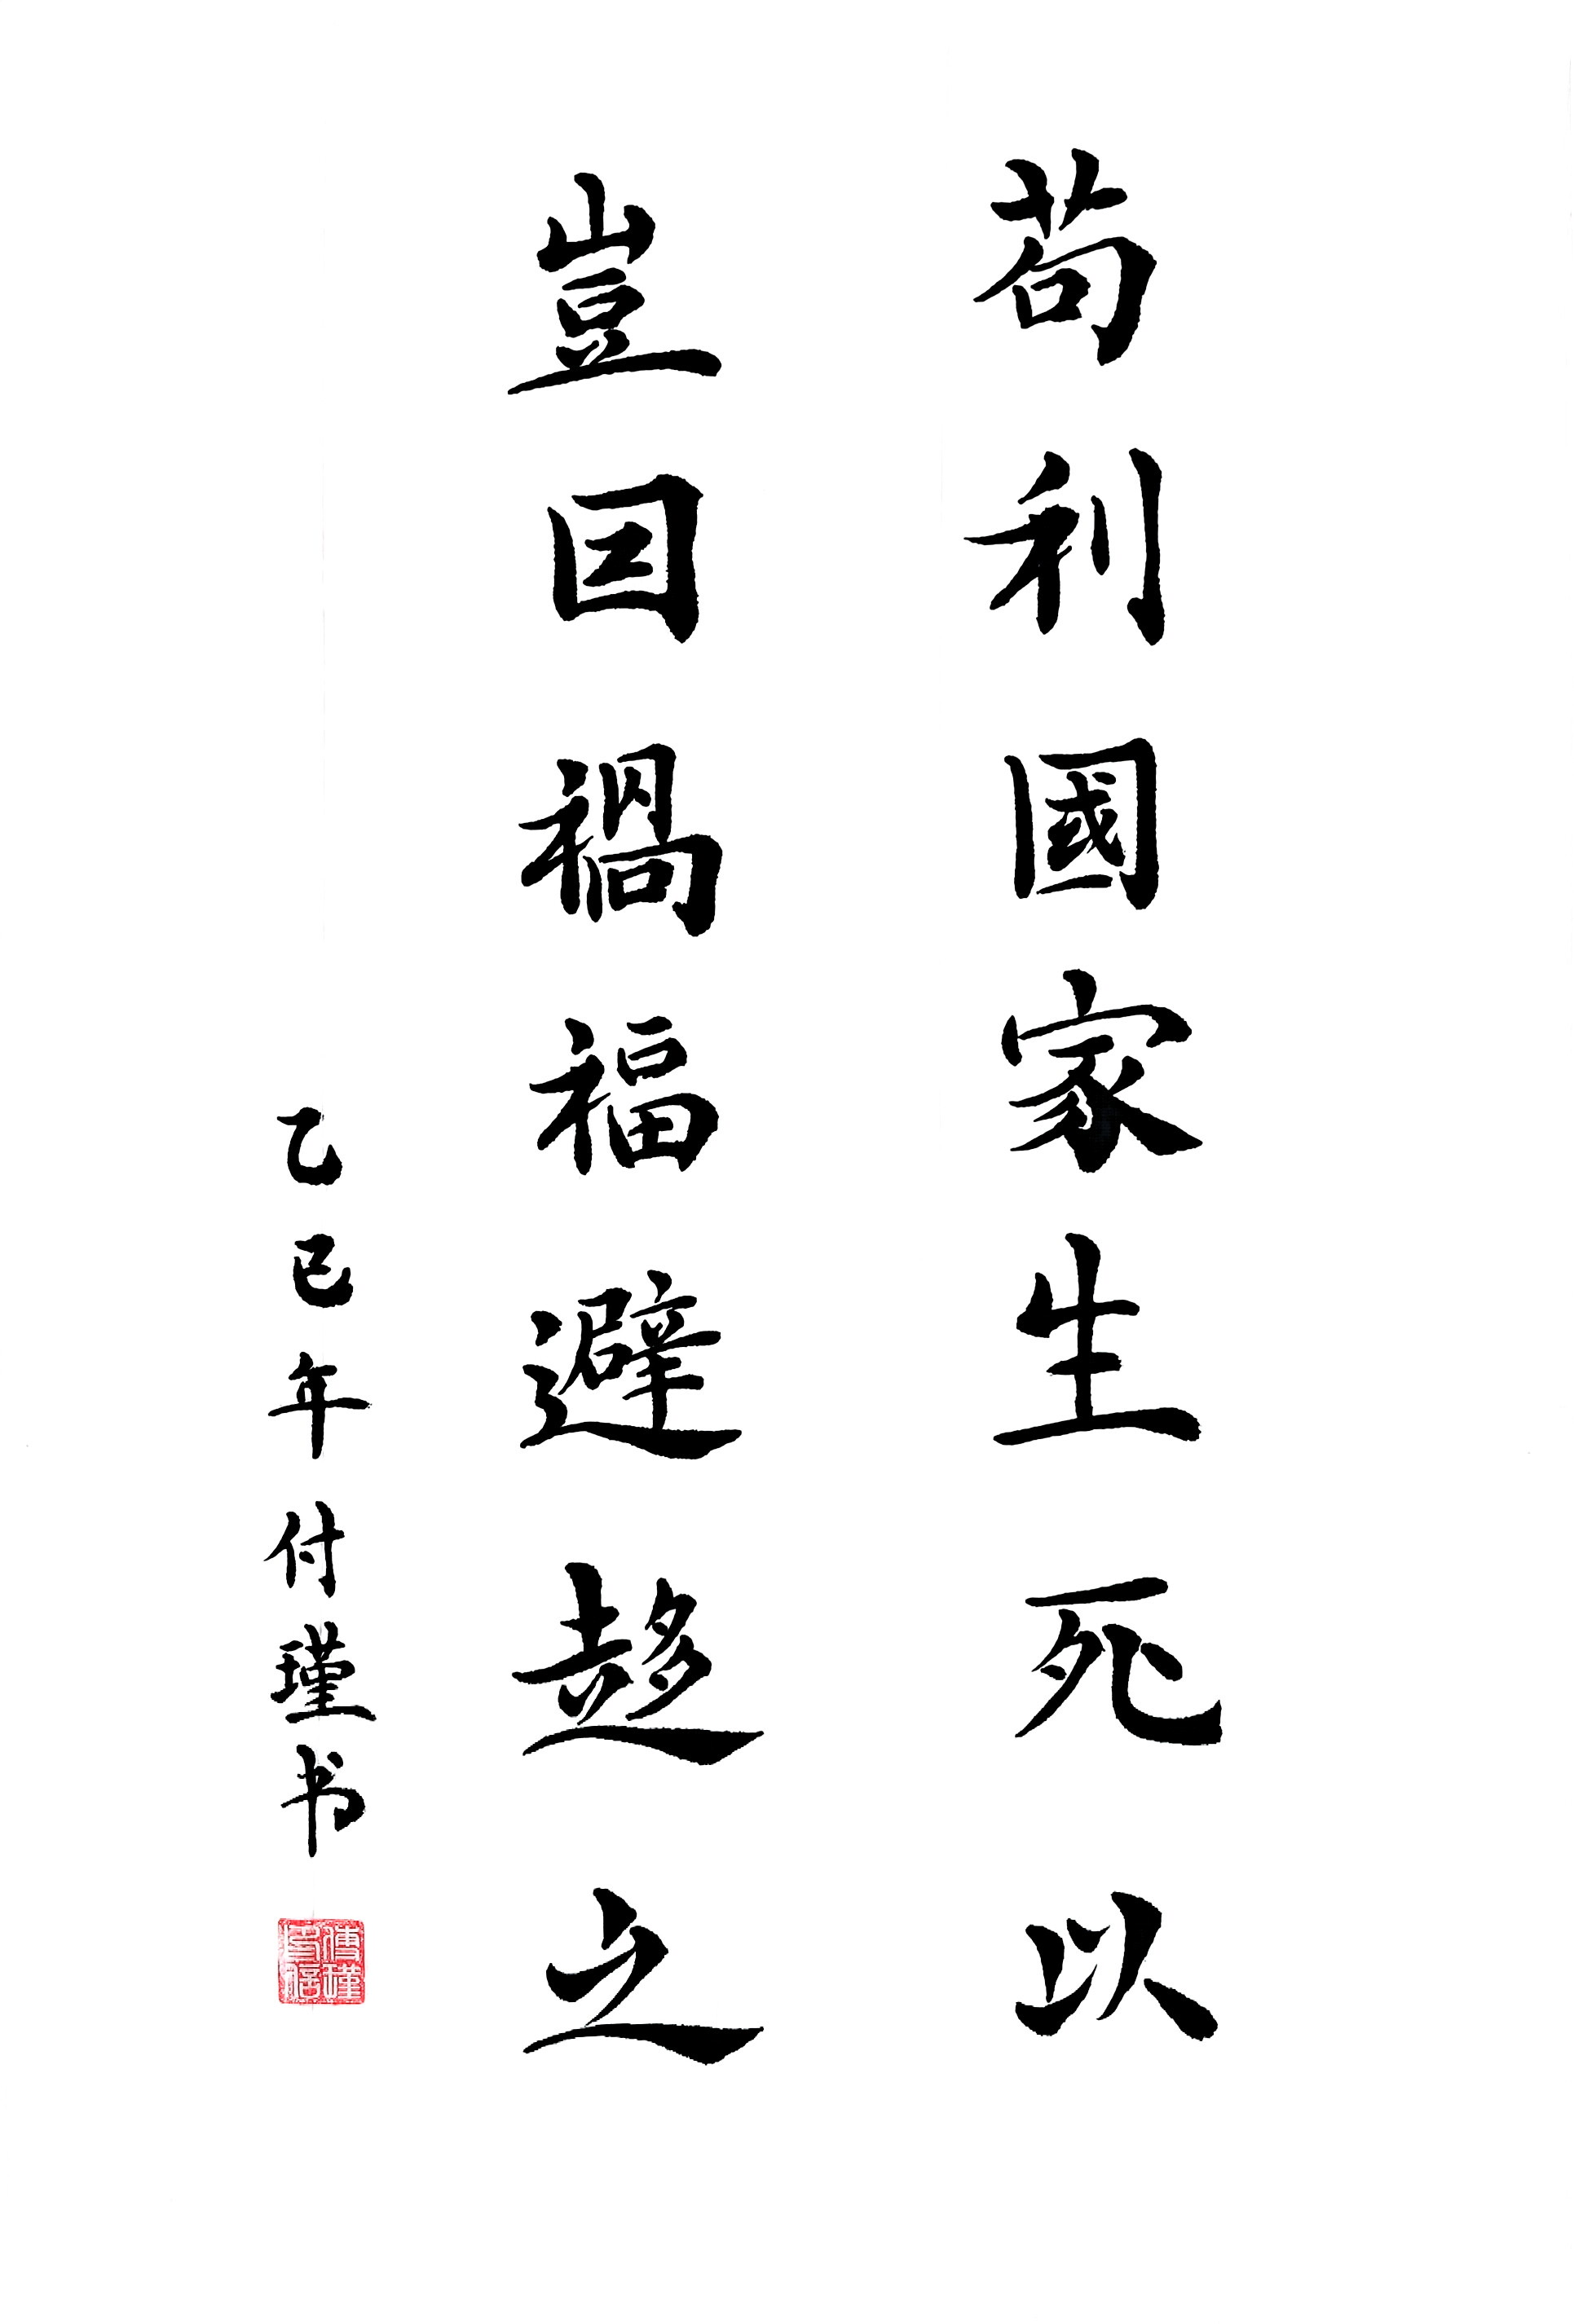 苟利國家生死以
豈囙禍福避趍之
乙巳年付瑾书
傅瑾印信